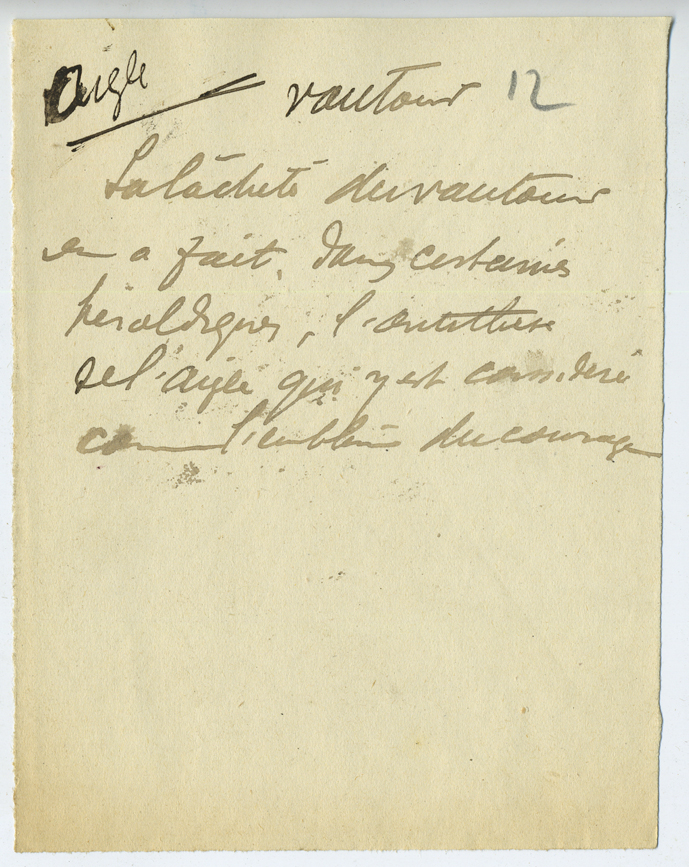 Aigle vautour 12
La lâcheté du vautour
en a fait, dans certaines
héraldiques, l'antithèse
de l'aigle qui y est considéré
comme l'emblème du courage